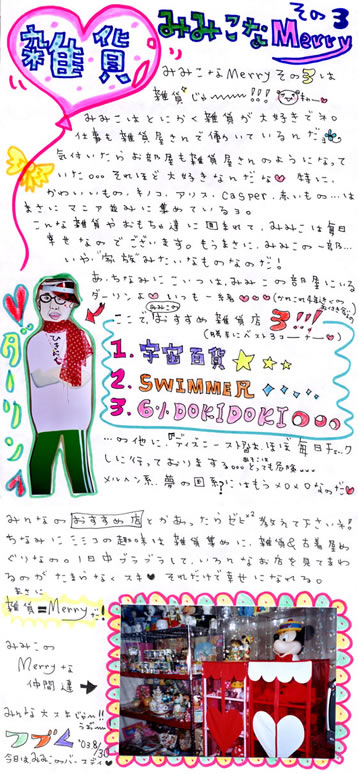 その3
みみこなMerry
雑貨
みみこなMerryその3は
雑貨じゃ〜〜〜!!!
みみこはとにかく雑貨が大好きでネ。
仕事も雑貨屋さんで働いているんだ
気付いたらお部屋も雑貨屋さんのようになって
いた。。。それほど大好きなんだな 特に、
かわいいもの、キノコ、アリス、casper、赤いもの…は
まさにマニア並みに集めているヨ。
こんな雑貨やおもちゃ達に囲まれて、みみこは毎日
幸せなのでございます。もうまさに、みみこの一部…
いや、家族みたいなものなのだ!
あ、ちなみにこいつは、みみこの部屋にいる
ダーリンよ いつも一緒
ダーリン
ここで、みみこのおすすめ雑貨店 3!!!
(勝手にベスト3コーナー)
1. 宇宙百貨
2. SWIMMER
3. 6%DOKIDOKI
…の他に、ディズニーストアは、ほぼ毎日チェック
しに行っております。。。
メルヘン系、夢の国系にはもうメロメロなのだ
みんなのおすすめ店とかあったらゼヒ×2教えて下さいネ!
ちなみにミミコの趣味は雑貨集めに、雑貨&古着屋め
ぐりなの。1日中ブラブラして、いろんなお店を見てまわ
るのがたまらなくスキ それだけで幸せになれる。
まさに
雑貨=Merryだ!
みみこの
Merryな
仲間達 →
みんな大スキじゃ!!
'03.8/30
今日はみみこのバースデイ